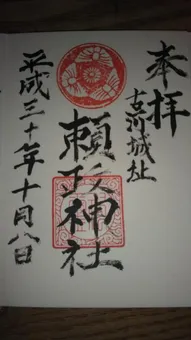 奉拝
古河城址
頼政神社
平成三十年十月八日